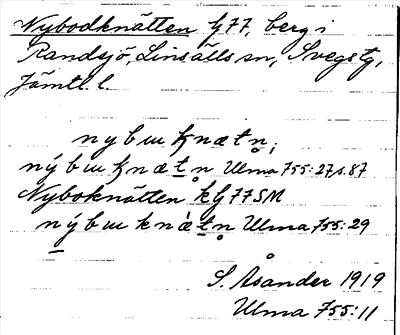 Nybodknätten kG 77, berg i
Randsjö, Linsälls sn, Svegs tg,
Jämtl. l.
nybɯknætn̥,
nýbɯknæt̠n̥ Ulma 755:27 s. 87
Nyboknätten kG 77 SM
nýbɯknæ̀t̠n̥ Ulma 755:29
S. Åsander 1919
Ulma 755:11